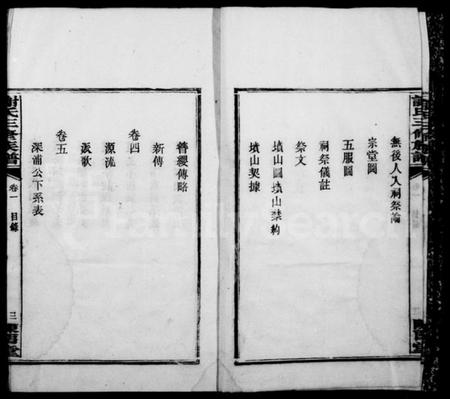 無後人入祠祭論
宗堂圖
五服圖
祠祭儀註
祭文
墳山圖墳山禁約
墳山契據
簪纓傳略
新傳
卷四
源流
派歌
卷五
深浦公下系表
謝氏三修族譜
卷一 目錄
三
FamilySearch